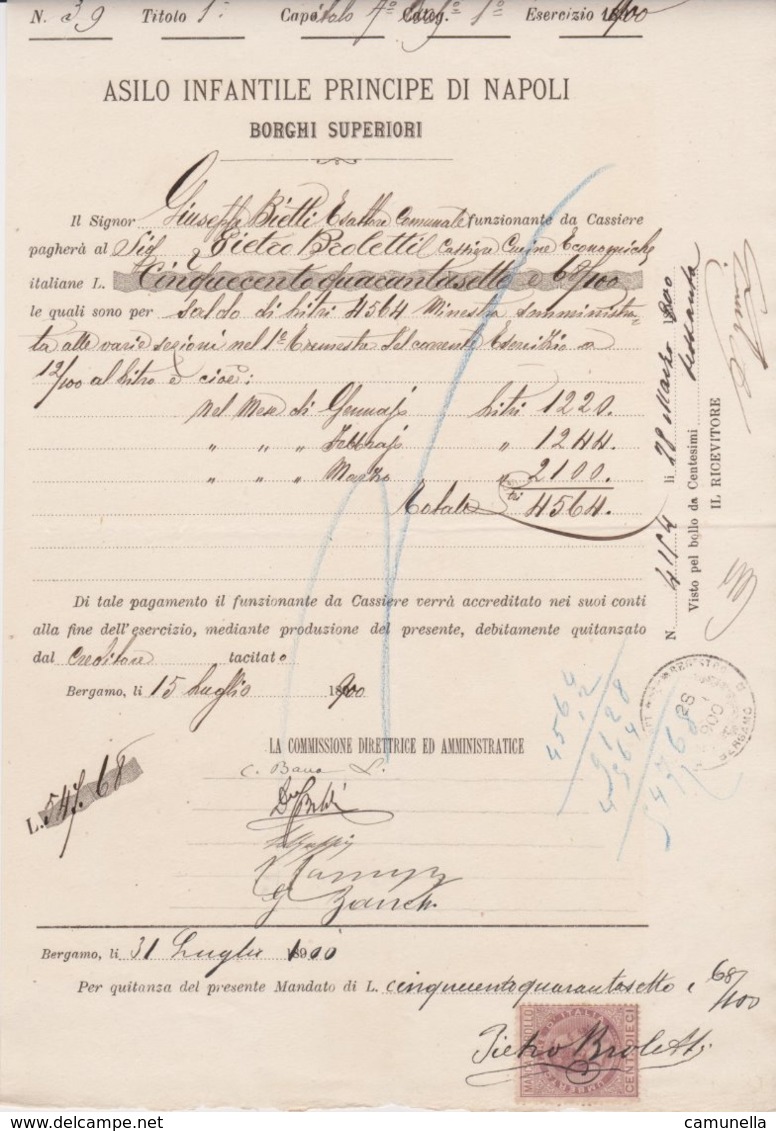 N. 39 Titolo 1° Capitolo 7° Categ. 1° Esercizio 1900
ASILO INFANTILE PRINCIPE DI NAPOLI
BORGHI SUPERIORI
Il Signor Giuseppe Bietti Esattore Comunale funzionante da Cassiere
pagherà al Sig Pietro Broletti Cassiere Cucine Economiche
italiane L. Cinquecentoquarantasette e 68/100
le quali sono per Saldo di litri 4564 Minestra somministra-
ta alle varie sezioni nel 1° Trimestre del corrente Esercizio a
12/100 al litro e cioè:
nel Mese di Gennajo litri 1220.
" " " Febbrajo " 1244.
" " " Marzo " 2100.
Totale litri 4564.
Di tale pagamento il funzionante da Cassiere verrà accreditato nei suoi conti
alla fine dell'esercizio, mediante produzione del presente, debitamente quitanzato
dal Creditore tacitato
Bergamo, li 15 Luglio 1900
LA COMMISSIONE DIRETTRICE ED AMMINISTRATICE
L. 547.68
Zanch
N. li 28 1900
Visto pel bollo da Centesimi sessanta
IL RICEVITORE
4564
12
9128
4564
547 68
BERGAMO
Bergamo, li 31 Luglio 1900
Per quitanza del presente Mandato di L. cinquecentoquarantasette e 68/100
Pietro Broletti
CENT. DIECI
camunella